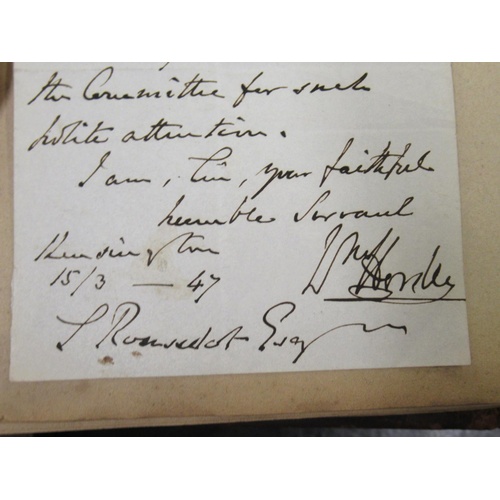 the Committee for such
polite attention.
I am, Sir, your faithful
humble Servant
Kensington
15/3 — 47
Wm Hornsby
S Rousselot Esq